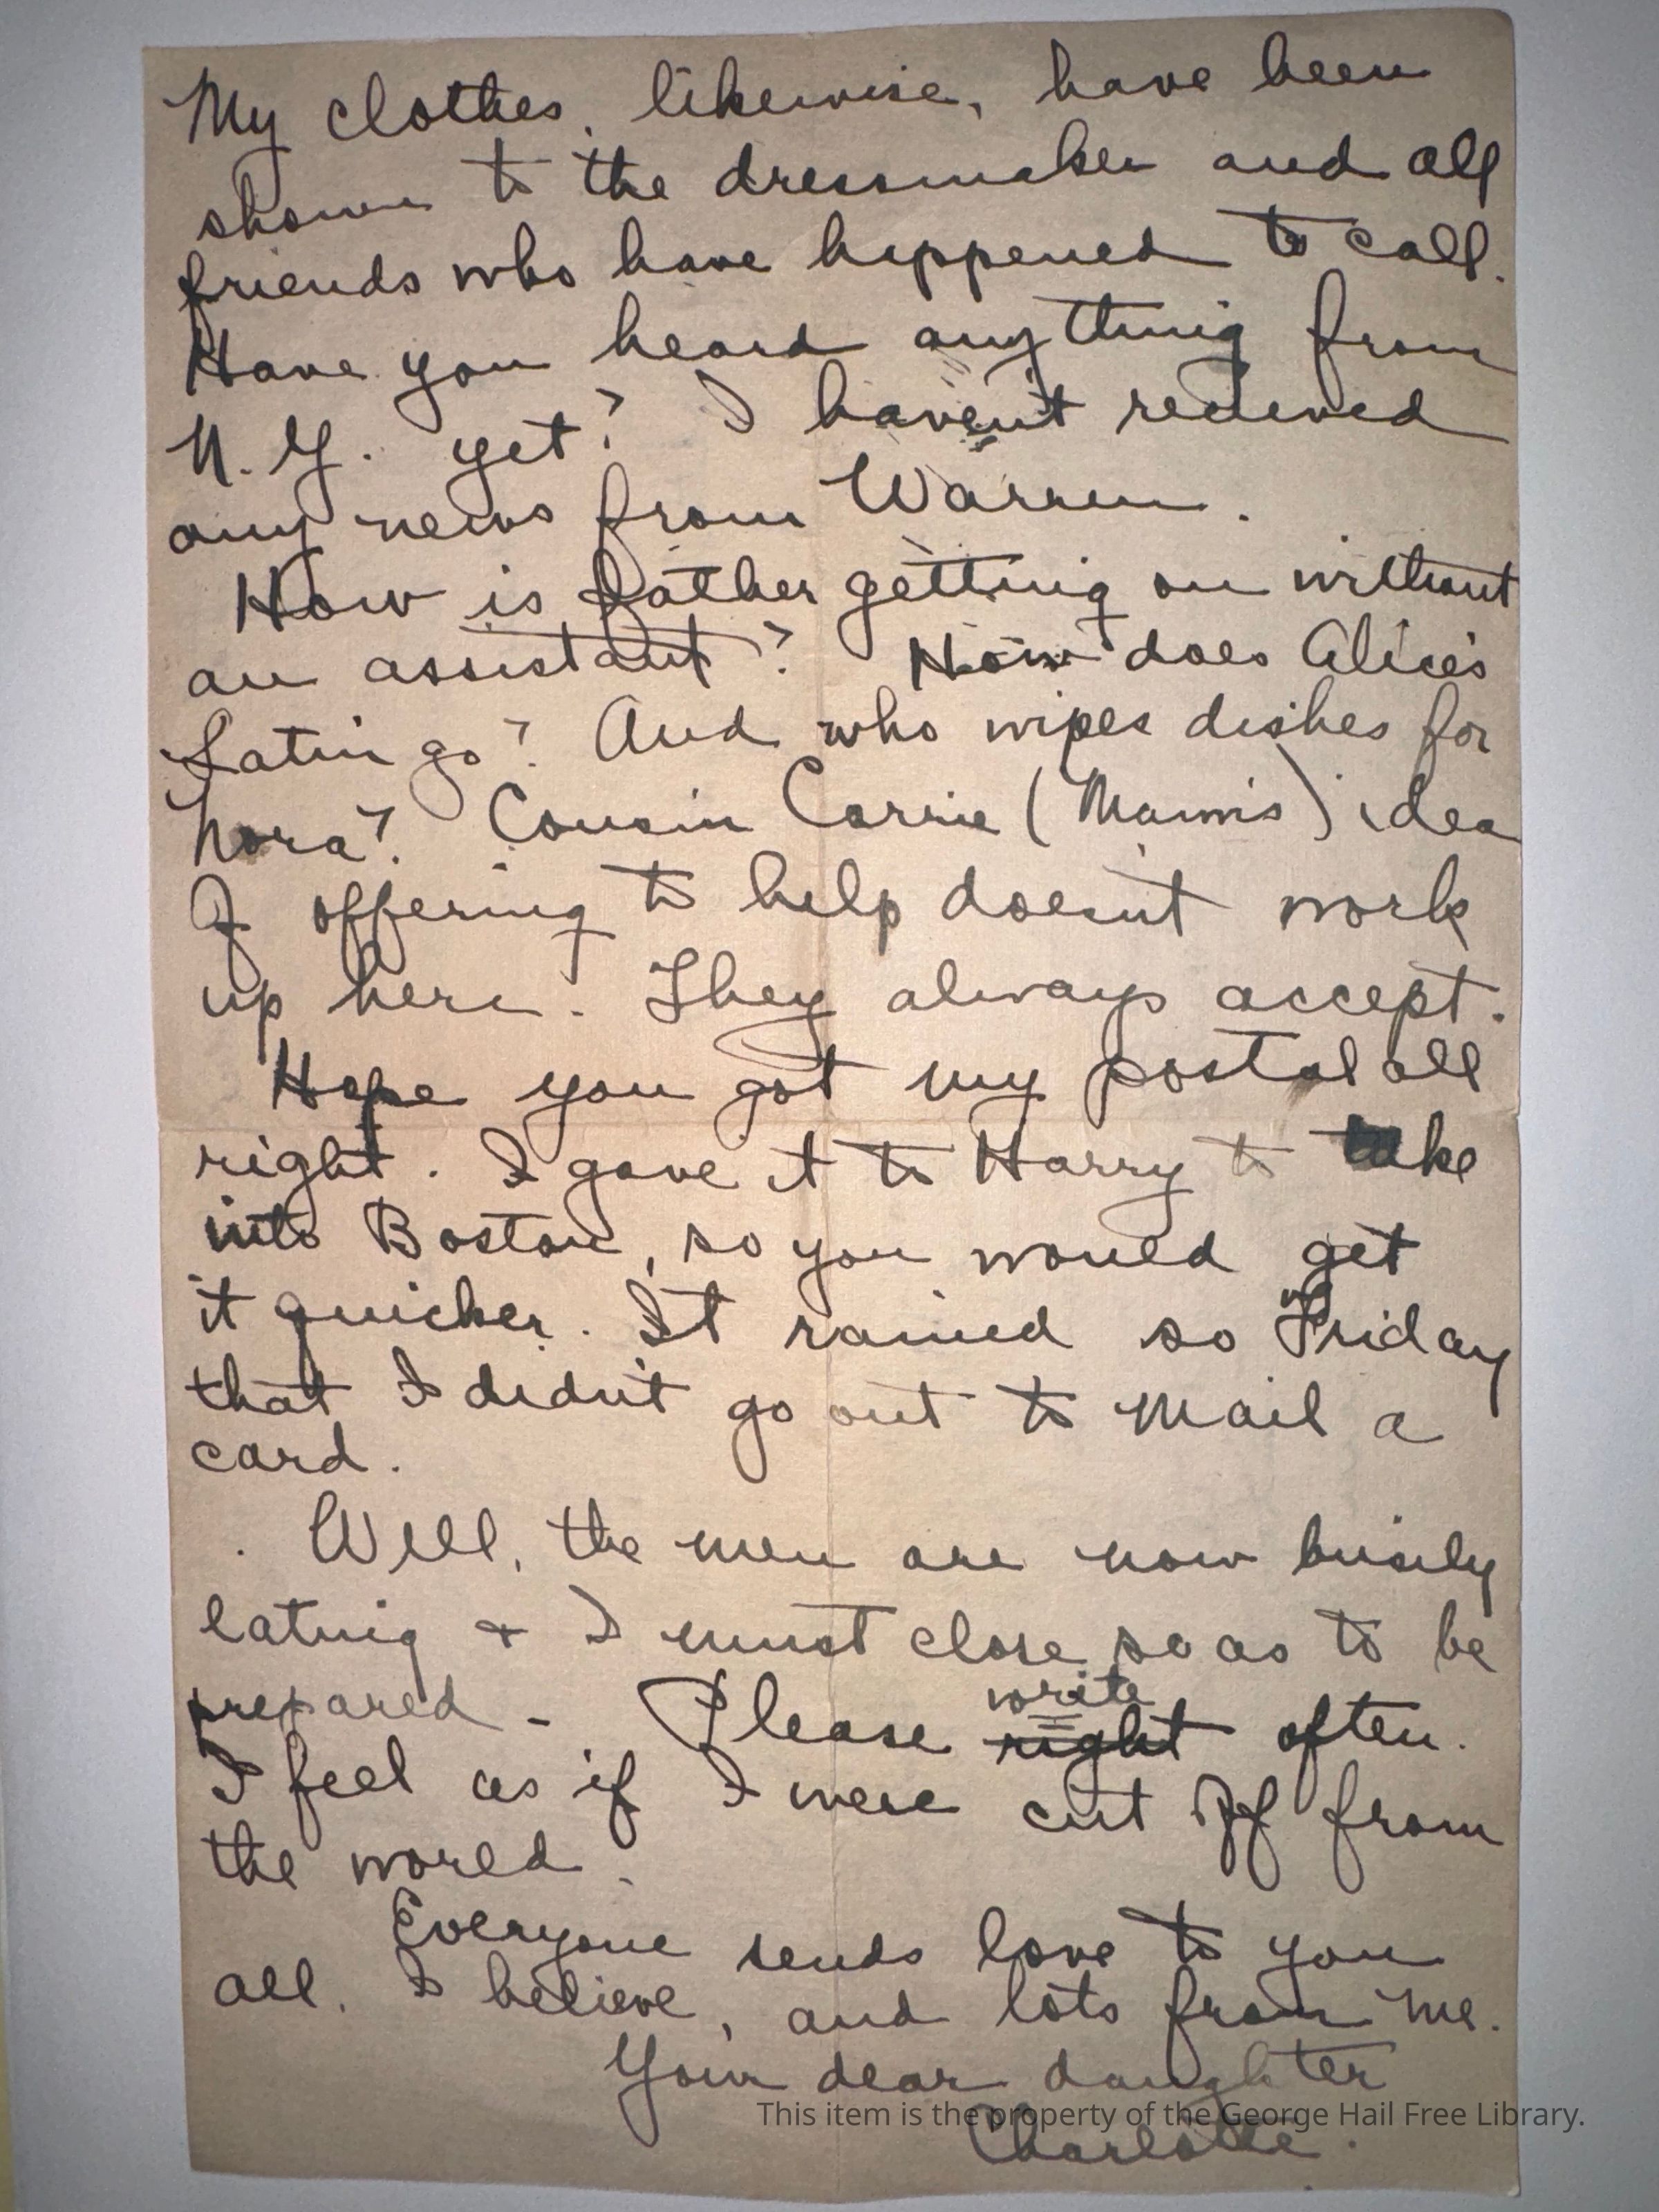 My clothes, likewise, have been
shown to the dressmaker and all
friends who have happened to call.
Have you heard anything from
N.Y. yet? I haven't recieved
any news from Warren.
How is father getting on without
an assistant? How does Alice's
Latin go? And who wipes dishes for
Nora? Cousin Carrie (Mamis) idea
of offering to help doesn't work
up here. They always accept.
Hope you got my postal all
right. I gave it to Harry to take
into Boston, so you would get
it quicker. It rained so Friday
that I didn't go out to mail a
card.
Well, the men are now busily
eating + I must close so as to be
prepared - Please right write often.
I feel as if I were cut off from
the world.
Everyone sends love to you
all, I believe, and lots from me.
Your dear daughter
This item is the property of the George Hail Free Library.
Charlotte.